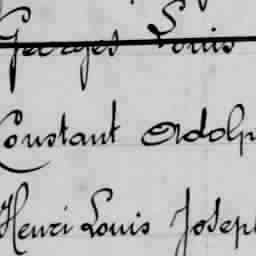 Georges Louis
Constant Adolp
Henri Louis Josep